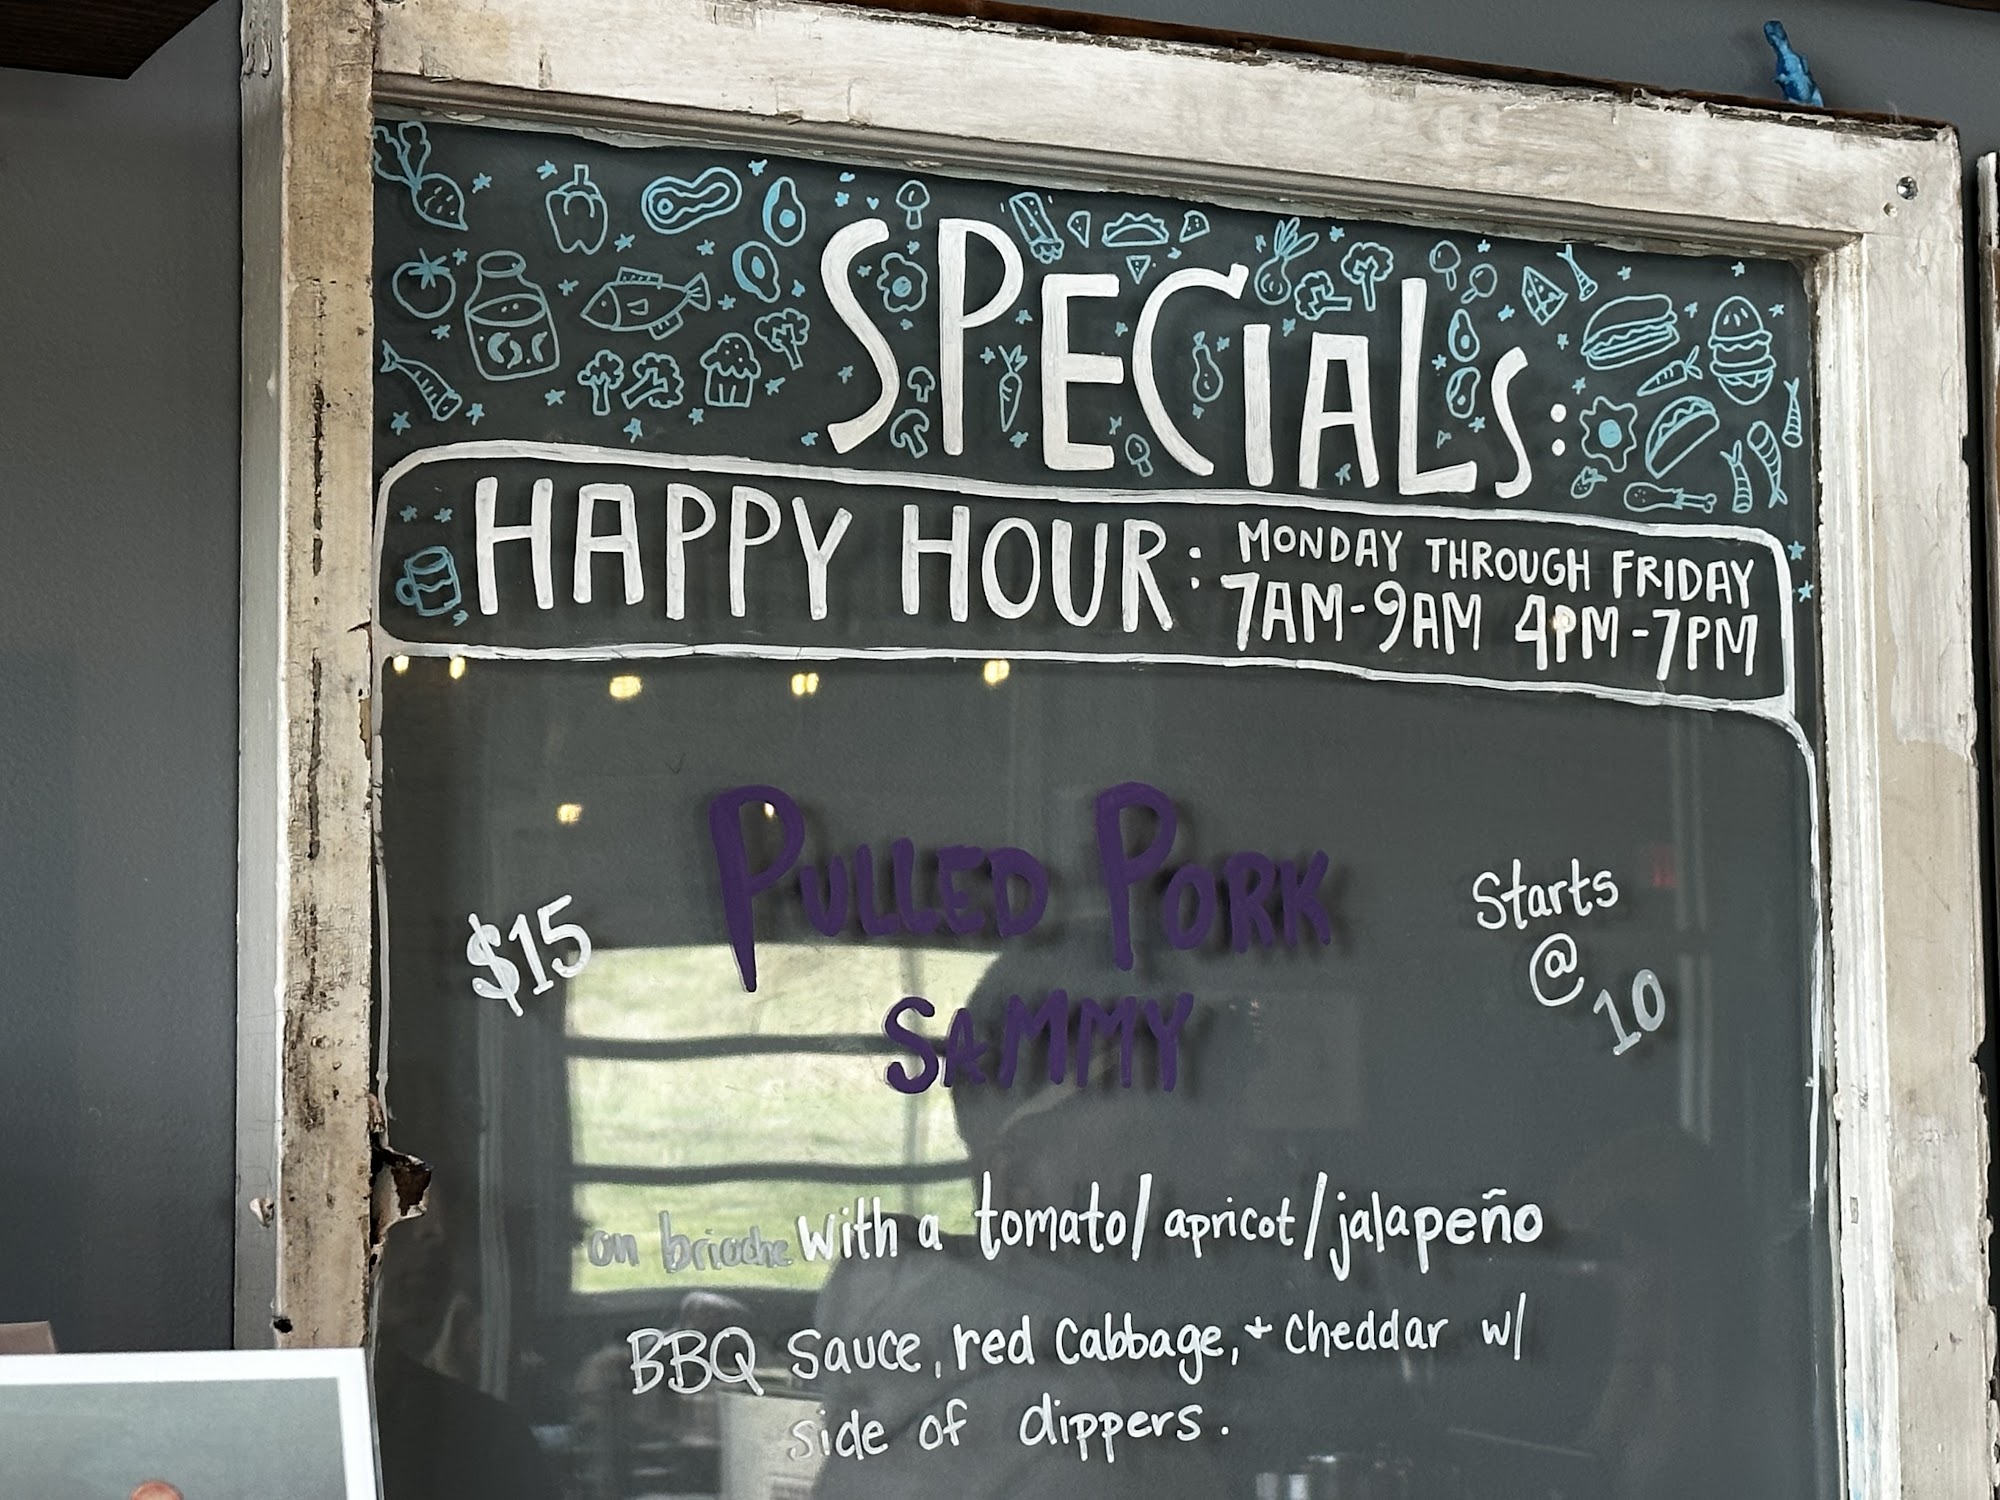 SPECIALS:
HAPPY HOUR: MONDAY THROUGH FRIDAY
7AM-9AM 4PM-7PM
PULLED PORK
SAMMY
$15
Starts
@
10
on brioche with a tomato/apricot/jalapeño
BBQ sauce, red cabbage, + cheddar w/
side of dippers.